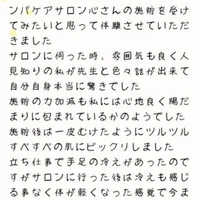 ンパケアサロン心さんの施術を受け
てみたいと思って体験させていただ
きました
サロンに伺った時、雰囲気も良く人
見知りの私が先生と色々話が出来て
自分自身本当に驚きでした
施術の力加減も私には心地良く陽だ
まりに包まれているかのようでした
施術後は一皮むけたようにツルツル
すべすべの肌にビックリしました
立ち仕事で手足の冷えがあったので
すがサロンに行った後は冷えも感じ
る事なく体が軽くなった感覚で今ま